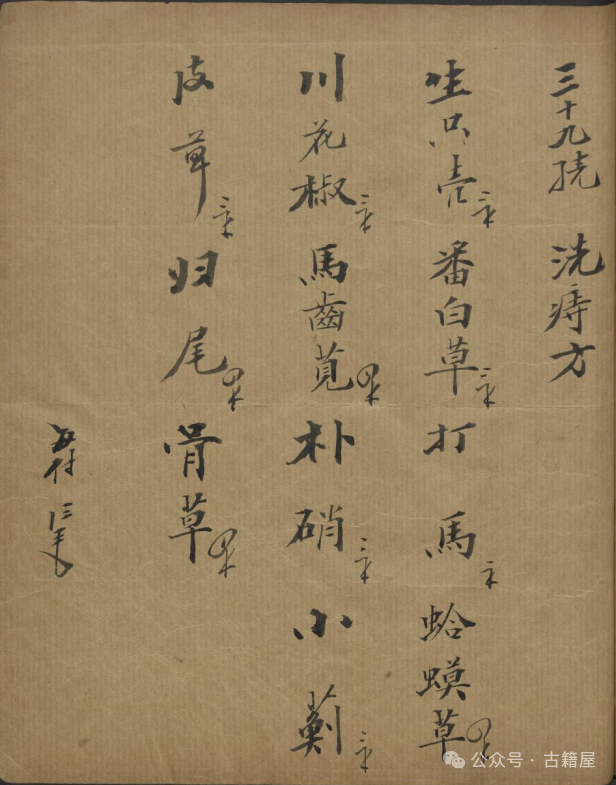 三十九號 洗痔方
生只壳三钱 番白草三钱 打馬 蛤蟆草四钱
川花椒三钱 馬齒莧四钱 朴硝三钱 小薊三钱
皮草三钱 归尾四钱 骨草四钱
公众号·古籍屋